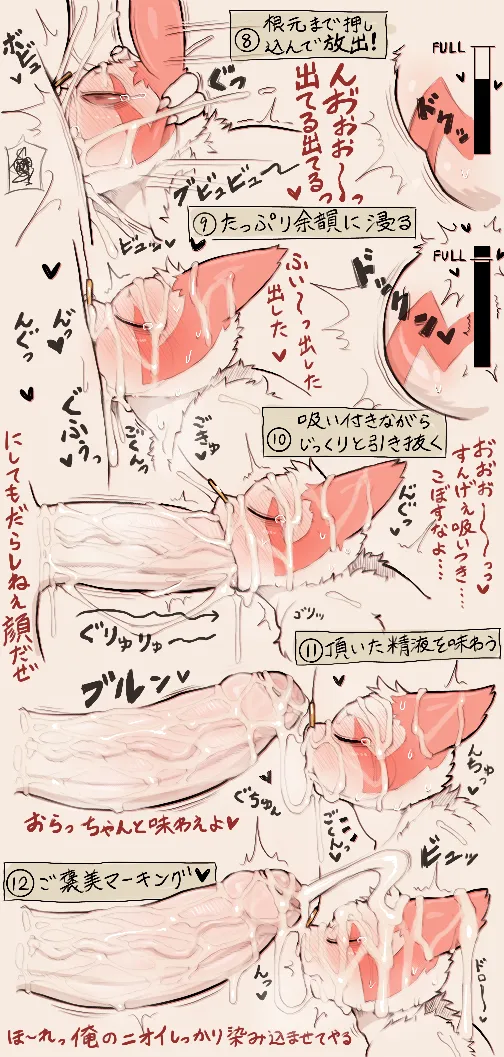 ⑧ 根元まで押し
込んで放出!
ボビュッ♥
ぐっ
FULL
んお゙ぉぉ〜〜っ
出てる出てるっ♥
ドクッ
グビュビュー〜
⑨ たっぷり余韻に浸る
ビュッ♥
FULL
ふい〜っ出した
出した♥
ドックン♥
んっ♥
んぐっ
ぐふぅっ♥
ごくんっ
ごきゅ
⑩ 吸い付きながら
じっくりと引き抜く
おおお〜〜っっ♥
すんげぇ吸いつき…
こぼすなよ…
んぐっ
にしてもだらしねぇ顔だぜ
ぐりゅりゅ〜
ゴリッ
⑪ 頂いた精液を味わう
ブルン♥
んちゅっ♥
ぐちゅん
ごくんっ♥
おらっちゃんと味わえよ♥
⑫ ご褒美マーキング♥
ビュッ
んっ♥
ドロ〜♥
ほ〜れっ俺のニオイしっかり染み込ませてやる